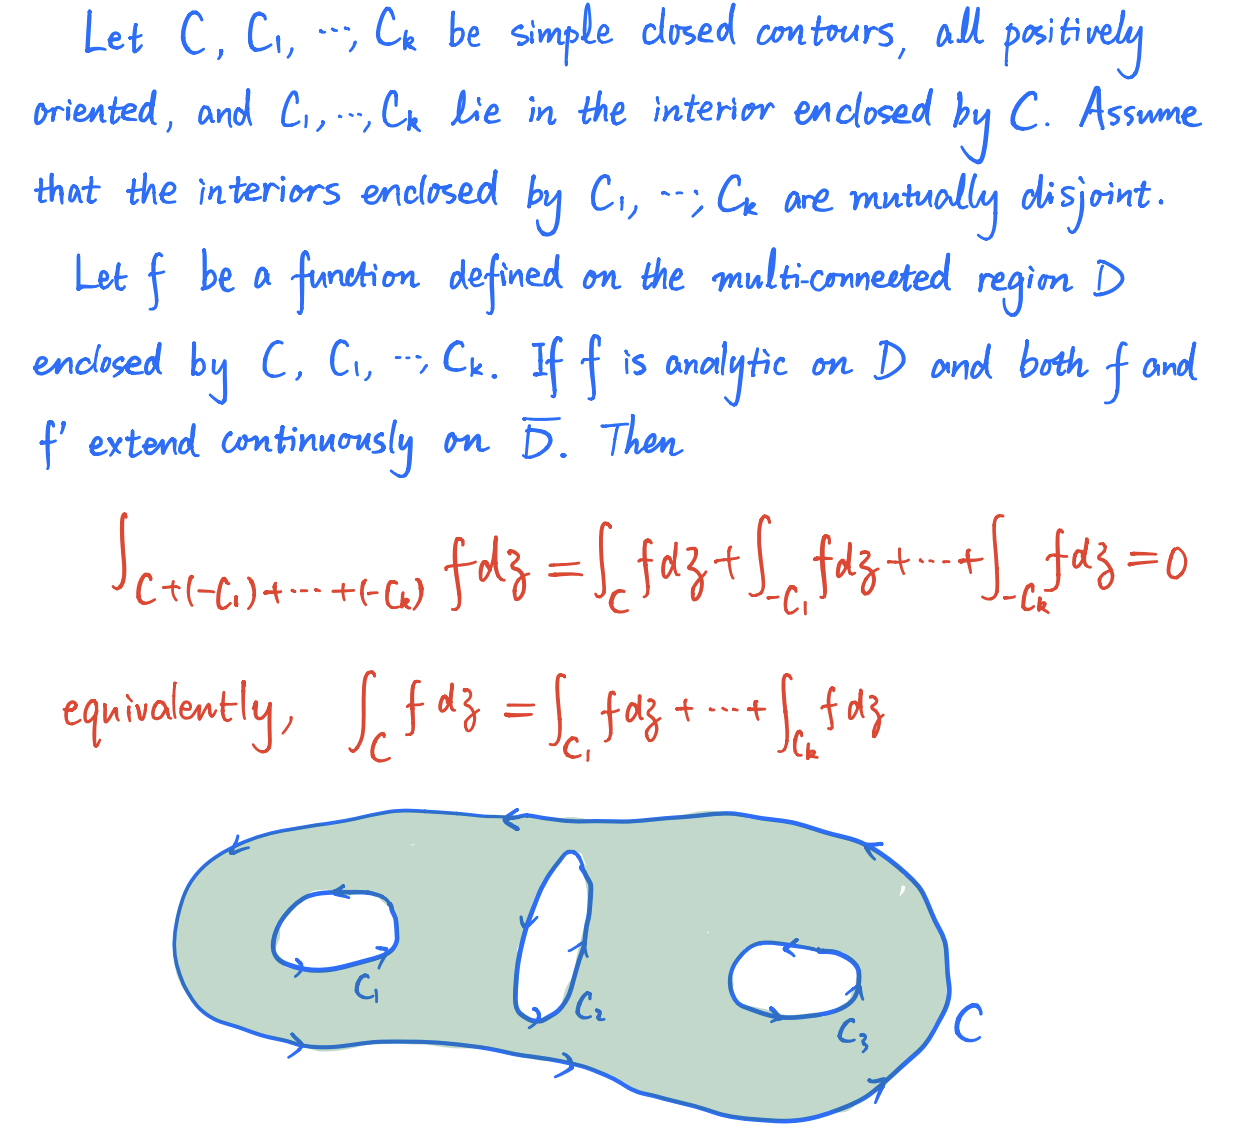 Let C, C₁, ⋯, Cₖ be simple closed contours, all positively
oriented, and C₁, ⋯, Cₖ lie in the interior enclosed by C. Assume
that the interiors enclosed by C₁, ⋯, Cₖ are mutually disjoint.
Let f be a function defined on the multi-connected region D
enclosed by C, C₁, ⋯, Cₖ. If f is analytic on D and both f and
f' extend continuously on D̅. Then
∫_{C+(-C₁)+⋯+(-Cₖ)} f dz = ∫_C f dz + ∫_{-C₁} f dz + ⋯ + ∫_{-Cₖ} f dz = 0
equivenlently, ∫_C f dz = ∫_{C₁} f dz + ⋯ + ∫_{Cₖ} f dz
C₁
C₂
C₃
C